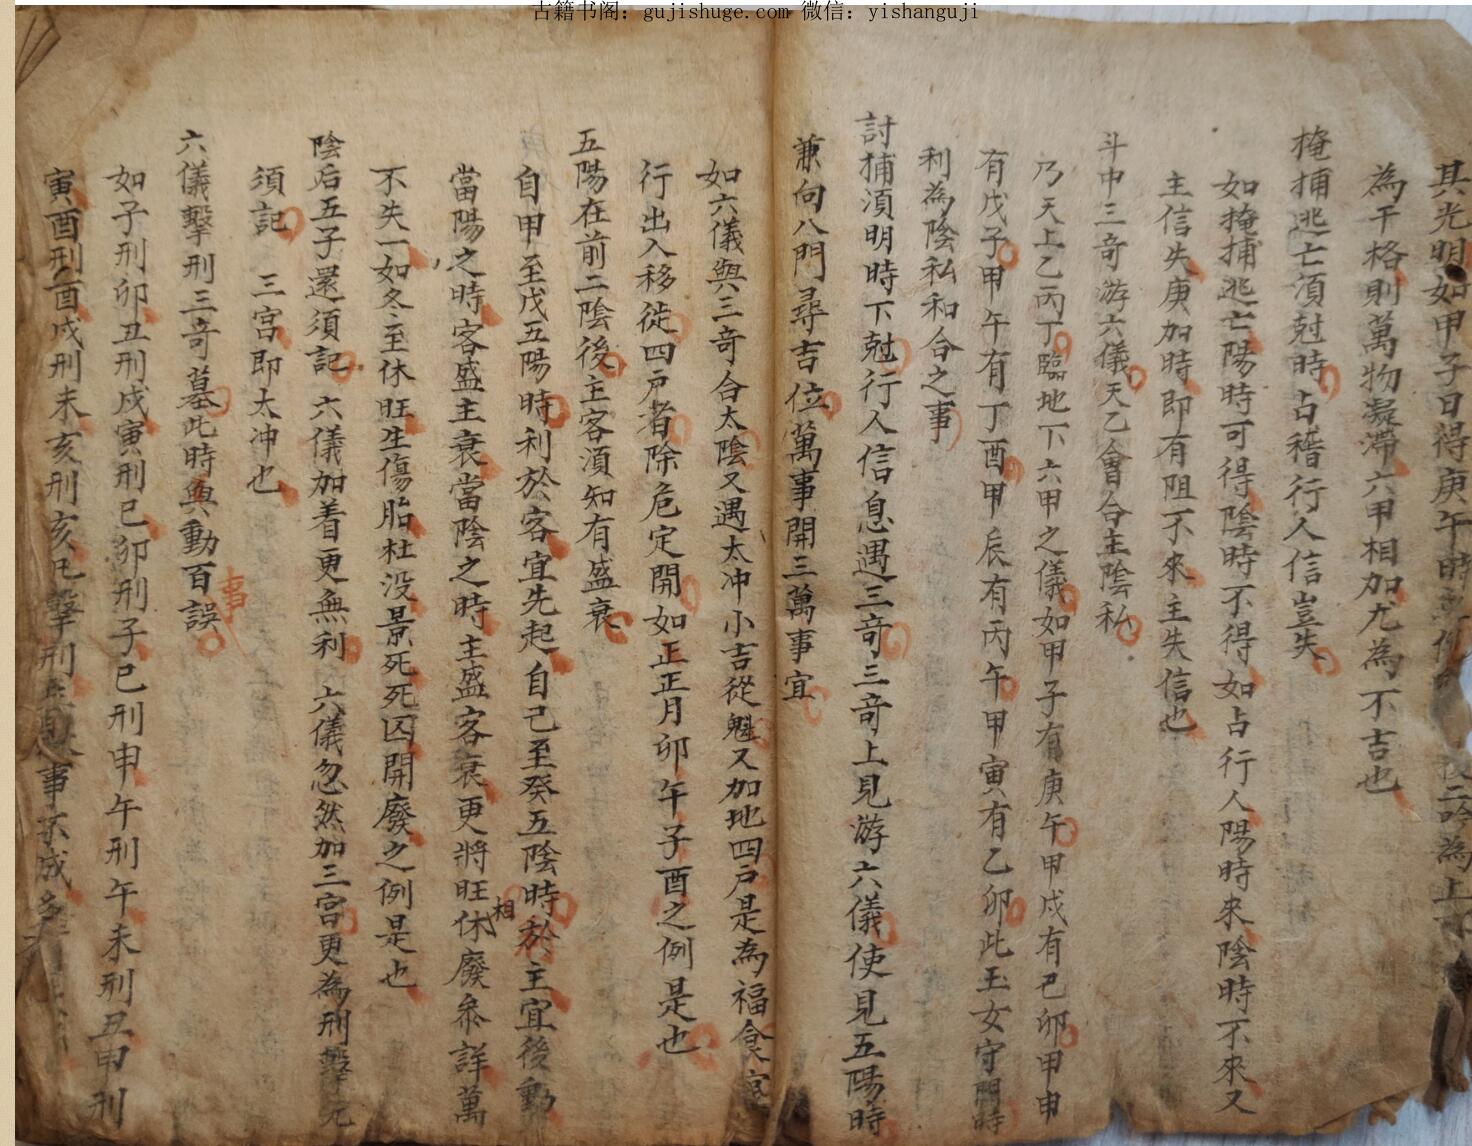 古籍书阁：gujishuge.com 微信：yishanguji
其光明如甲子日得庚午時
為上
為干格則萬物凝滯六甲相加尤為不吉也
掩捕逃亡須尅時占稽行人信豈失
如掩捕逃亡陽時可得陰時不得如占行人陽時來陰時不來又
主信失庚加時即有阻不來主失信也
斗中三竒游六儀天乙會合主陰私
乃天上乙丙丁臨地下六甲之儀如甲子有庚午甲戌有己卯甲申
有戊子甲午有丁酉甲辰有丙午甲寅有乙卯此玉女守門時
利為陰私和合之事
討捕須明時下尅行人信息遇三竒三竒上見游六儀使見五陽時
兼向八門尋吉位萬事開三萬事宜
如六儀與三竒合太陰又遇太冲小吉從魁又加地四戸是為福食
行出入移徙四戸者除危定開如正正月卯午子酉之例是也
五陽在前二陰後主客須知有盛衰
自甲至戊五陽時利於客宜先起自己至癸五陰時於主宜後動
當陽之時客盛主衰當陰之時主盛客衰更將旺休相廢參詳萬
不失一如冬至休旺生傷胎杜没景死死囚開廢之例是也
陰后五子還須記六儀加着更無利 六儀忽然加三宮更為刑擊元
須記 三宮即太冲也
六儀擊刑三竒墓此時與動百誤事
如子刑卯丑刑戌寅刑巳卯刑子巳刑申午刑午未刑丑申刑
寅酉刑酉戌刑未亥刑亥已擊刑
事不成